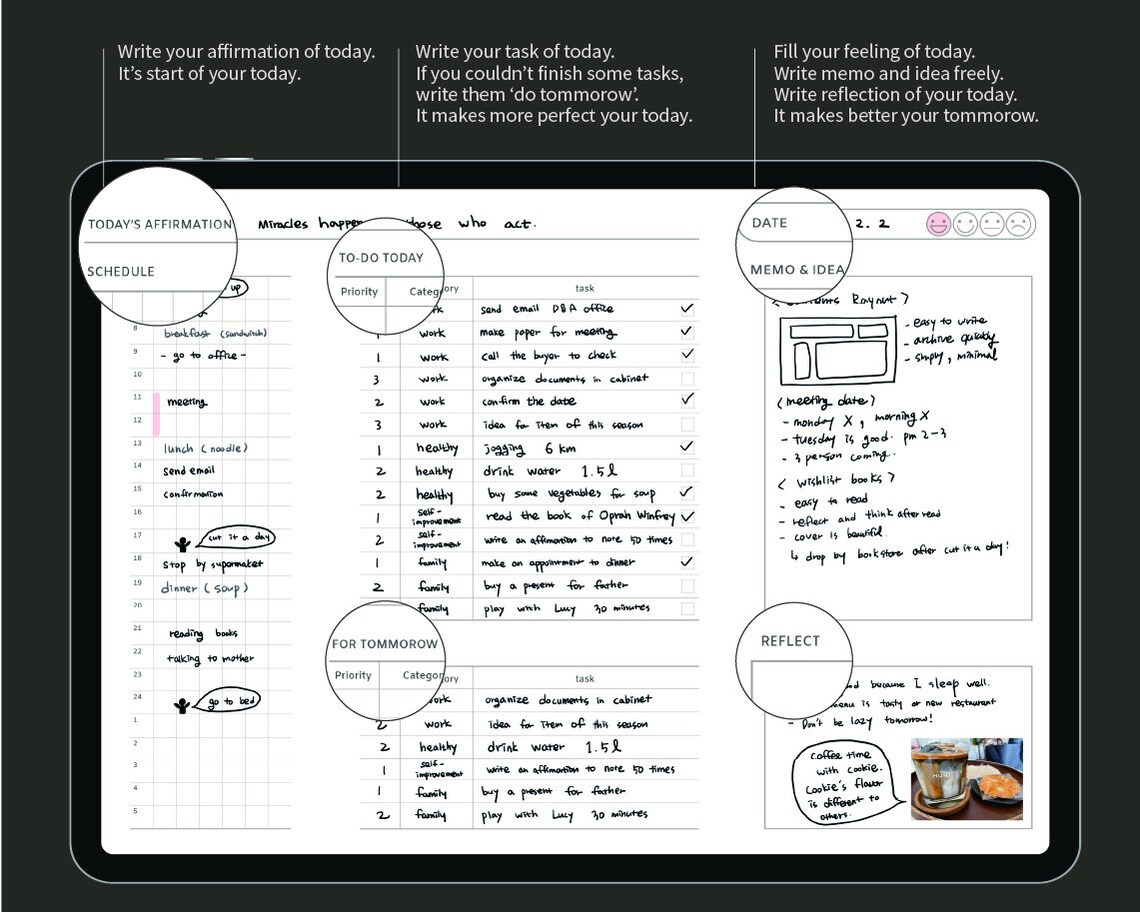 Write your affirmation of today.
It's start of your today.
Write your task of today.
If you couldn't finish some tasks,
write them 'do tommorow'.
It makes more perfect your today.
Fill your feeling of today.
Write memo and idea freely.
Write reflection of your today.
It makes better your tommorow.
TODAY'S AFFIRMATION
Miracles happen those who act.
SCHEDULE
up
8 breakfast (sandwitch)
9 - go to office -
10
11 meeting
12
13 lunch (noodle)
14 send email
15 confirmation
16
17 cut it a day
18 stop by supermaket
19 dinner (soup)
20
21 reading books
22 talking to mother
23
24 go to bed
1
2
3
4
5
TO-DO TODAY
Priority Category task
work send email D&A office
1 work make paper for meeting
1 work call the buyor to check
3 work organize documents in cabinet
2 work confirm the date
3 work idea for item of this season
1 healthy jogging 6 km
2 healthy drink water 1.5l
2 healthy buy some vegetables for soup
1 self-improvement read the book of Oprah Winfrey
2 self-improvement write an affimation to note 50 times
1 family make an appointment to dinner
2 family buy a present for father
family play with Lucy 30 minutes
FOR TOMMOROW
Priority Category task
work organize documents in cabinet
2 work idea for item of this season
2 healthy drink water 1.5l
1 self-improvement write an affimation to note 50 times
1 family buy a present for father
2 family play with Lucy 30 minutes
DATE 2. 2
MEMO & IDEA
Raynut >
- easy to write
- archive quickly
- simply, minimal
< meeting date >
- monday X, morning X
- tuesday is good. pm 2-3
- 3 person coming.
< wishlist books >
- easy to read
- reflect and think after read
- cover is beautiful.
↳ drop by bookstore after cut it a day!
REFLECT
because I sleep well.
menu is tasty at new restaurant
- Don't be lazy tomorrow!
Coffee time
with cookie.
Cookie's flavor
is different to
others.